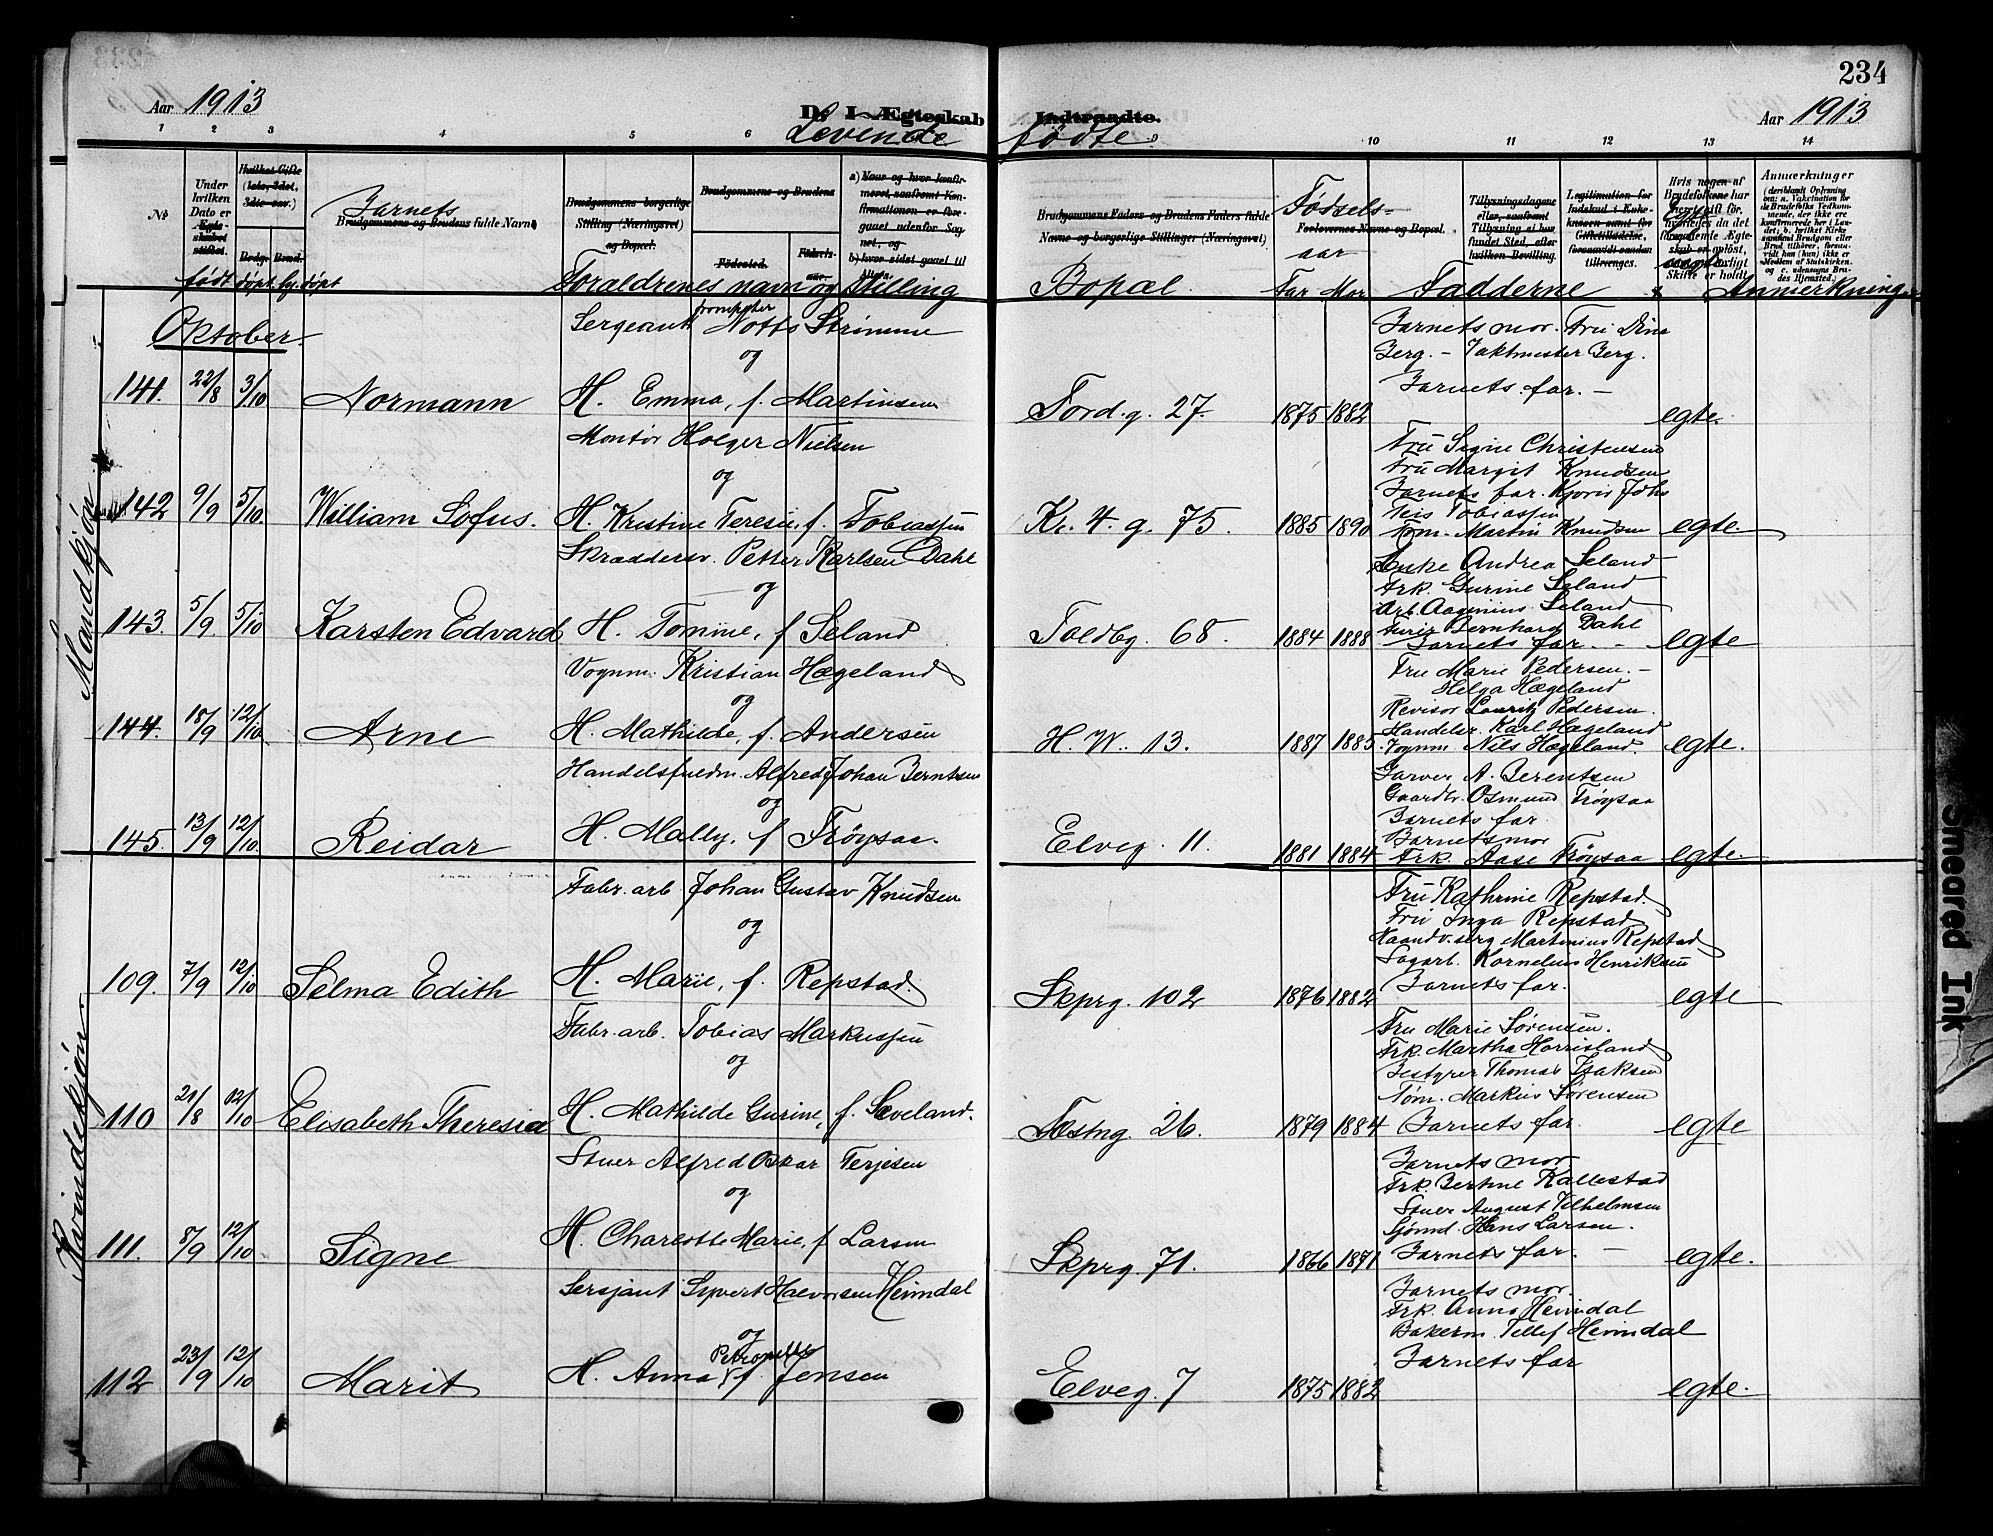 234
Aar 1913
D. I Ægteskab Indtraadte.
Levende fødte.
Aar 1913
1 2 3 4 5 6 9 10 11 12 13 14
No
Under hvilken Dato er Ægteskabet stiftet.
Hvilket Gifte (1ste, 2det, 3die osv.)
Brdg. Brud.
Barnets
Brudgommens og Brudens fulde Navne
Brudgommens borgerlige Stilling (Næringsvei) og Bopæl.
Brudgommens og Brudens
Fødested.
Fødselsaar.
Brudgommens Faders og Brudens Faders fulde Navne og borgerlige Stillinger (Næringsvei)
Fødsels=
Forlovernes Navne og Bopæl.
aar
Anmærkninger
født døpt hj.døpt
Forældrenes navn og Stilling
Bopæl.
Far Mor
Fadderne
Anmerkning.
Mandkjøn
Oktober.
141. 22/8 3/10 Normann
Sergeant trompeter Notto Strømme
og
H. Emma, f. Martinsen
Tord.g. 27. 1875 1882
Barnets mor. Fru Dina
Berg. – Taktmester Berg.
Barnets far. –
egte.
142 9/9 5/10. William Sofus.
Montør Holger Nielsen
og
H. Kristine Teresie, f. Tobiassen
Kr. 4. g. 75. 1885 1890
Fru Signe Christensen
Fru Margit Knudsen
Barnets far.
Tobiassen
Tøm. Martin Knudsen
egte.
143. 5/9. 5/10 Karsten Edvard
Skræddersv. Petter Karlsen Dahl
og
H. Tomine, f Seland
Toldbg. 68. 1884 1888
Enke Andrea Seland
Frk. Gurine Seland
Arb. Aaginius Seland
Bernhard Dahl
Barnets far. –
egte
144. 18/9 12/10. Arne
Vognm. Kristian Hægeland
og
H. Mathilde, f. Andersen
H. W. 13. 1887 1885
Fru Marie Pedersen. –
Helga Hægeland
Revisor Lauritz Pedersen.
Handelsr. Karl Hægeland
Vognm Nils Hægeland.
egte.
145. 13/9 12/10. Reidar
Handelsfuldm. Alfred Johan Berntsen
og
H. Mally, f Frøysaa.
Elveg. 11. 1881 1884
Garver A. Berentsen
Gaardbr. Osmund Frøysaa
Barnets far.
Barnets mor
Frk. Aase Frøysaa
egte.
Kvindekjøn
109. 7/9 12/10 Selma Edith
Fabr. arb. Johan Gustav Knudsen
og
H. Marie, f. Repstad.
Skprg. 102 1876 1882
Fru Kathrine Repstad.
Fru Inga Repstad
Martinius Repstad
Sagarb. Kornelius Henriksen
Barnets far.
egte
110 21/8 12/10 Elisabeth Theresia
Fabr. arb. Tobias Markussen
og
H. Mathilde Gurine, f. Sæveland.
Fæstng. 26. 1879 1884
Fru Marie Sørensen.
Frk. Martha Horrisland
Bestyrer Thomas Isaksen
Tøm. Markus Sørensen
Barnets far.
egte
111. 8/9 12/10 Signe
Stuer Alfred Oskar Terjesen
og
H. Charlotte Marie, f Larsen
Skprg. 71. 1866 1871
Barnets mor
Frk. Bertine Kallestad
Stuer August Vilhelmsen
Sjømd. Hans Larsen.
Barnets far. –
egte.
112 23/9 12/10 Marit
Sersjant Syvert Halvorsen Heimdal
og
H. Anna Petronelle f. Jensen
Elveg. 7 1875 1882
Barnets mor.
Frk. Anna Heimdal
Bakerm. Tellef Heimdal
Barnets far
egte.
Smeared Ink